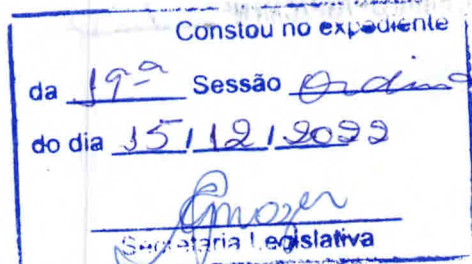 Constou no expediente
da 19ª Sessão Ordina
do dia 15/12/2022
Secretaria Legislativa